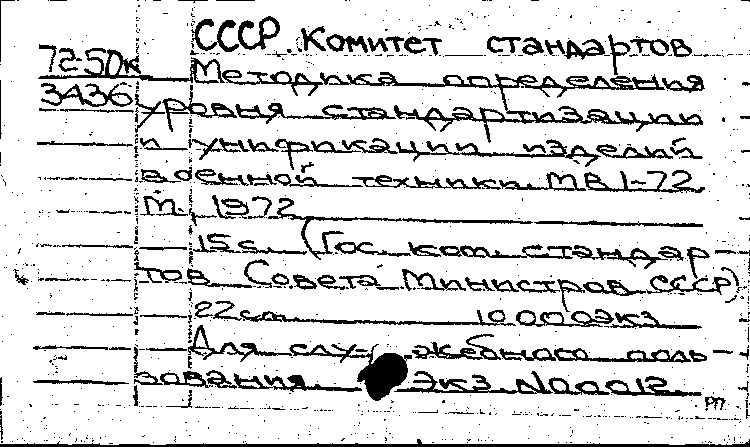 СССР. Комитет стандартов
72-50к Методика определения
3436 уровня стандартизации
и унификации изделий
военной техники. МВ 1-72
М., 1972
15с. (Гос. ком. стандар-
тов Совета Министров СССР)
22см. 10000экз
Для служебного поль-
зования. Экз. N00012
РП